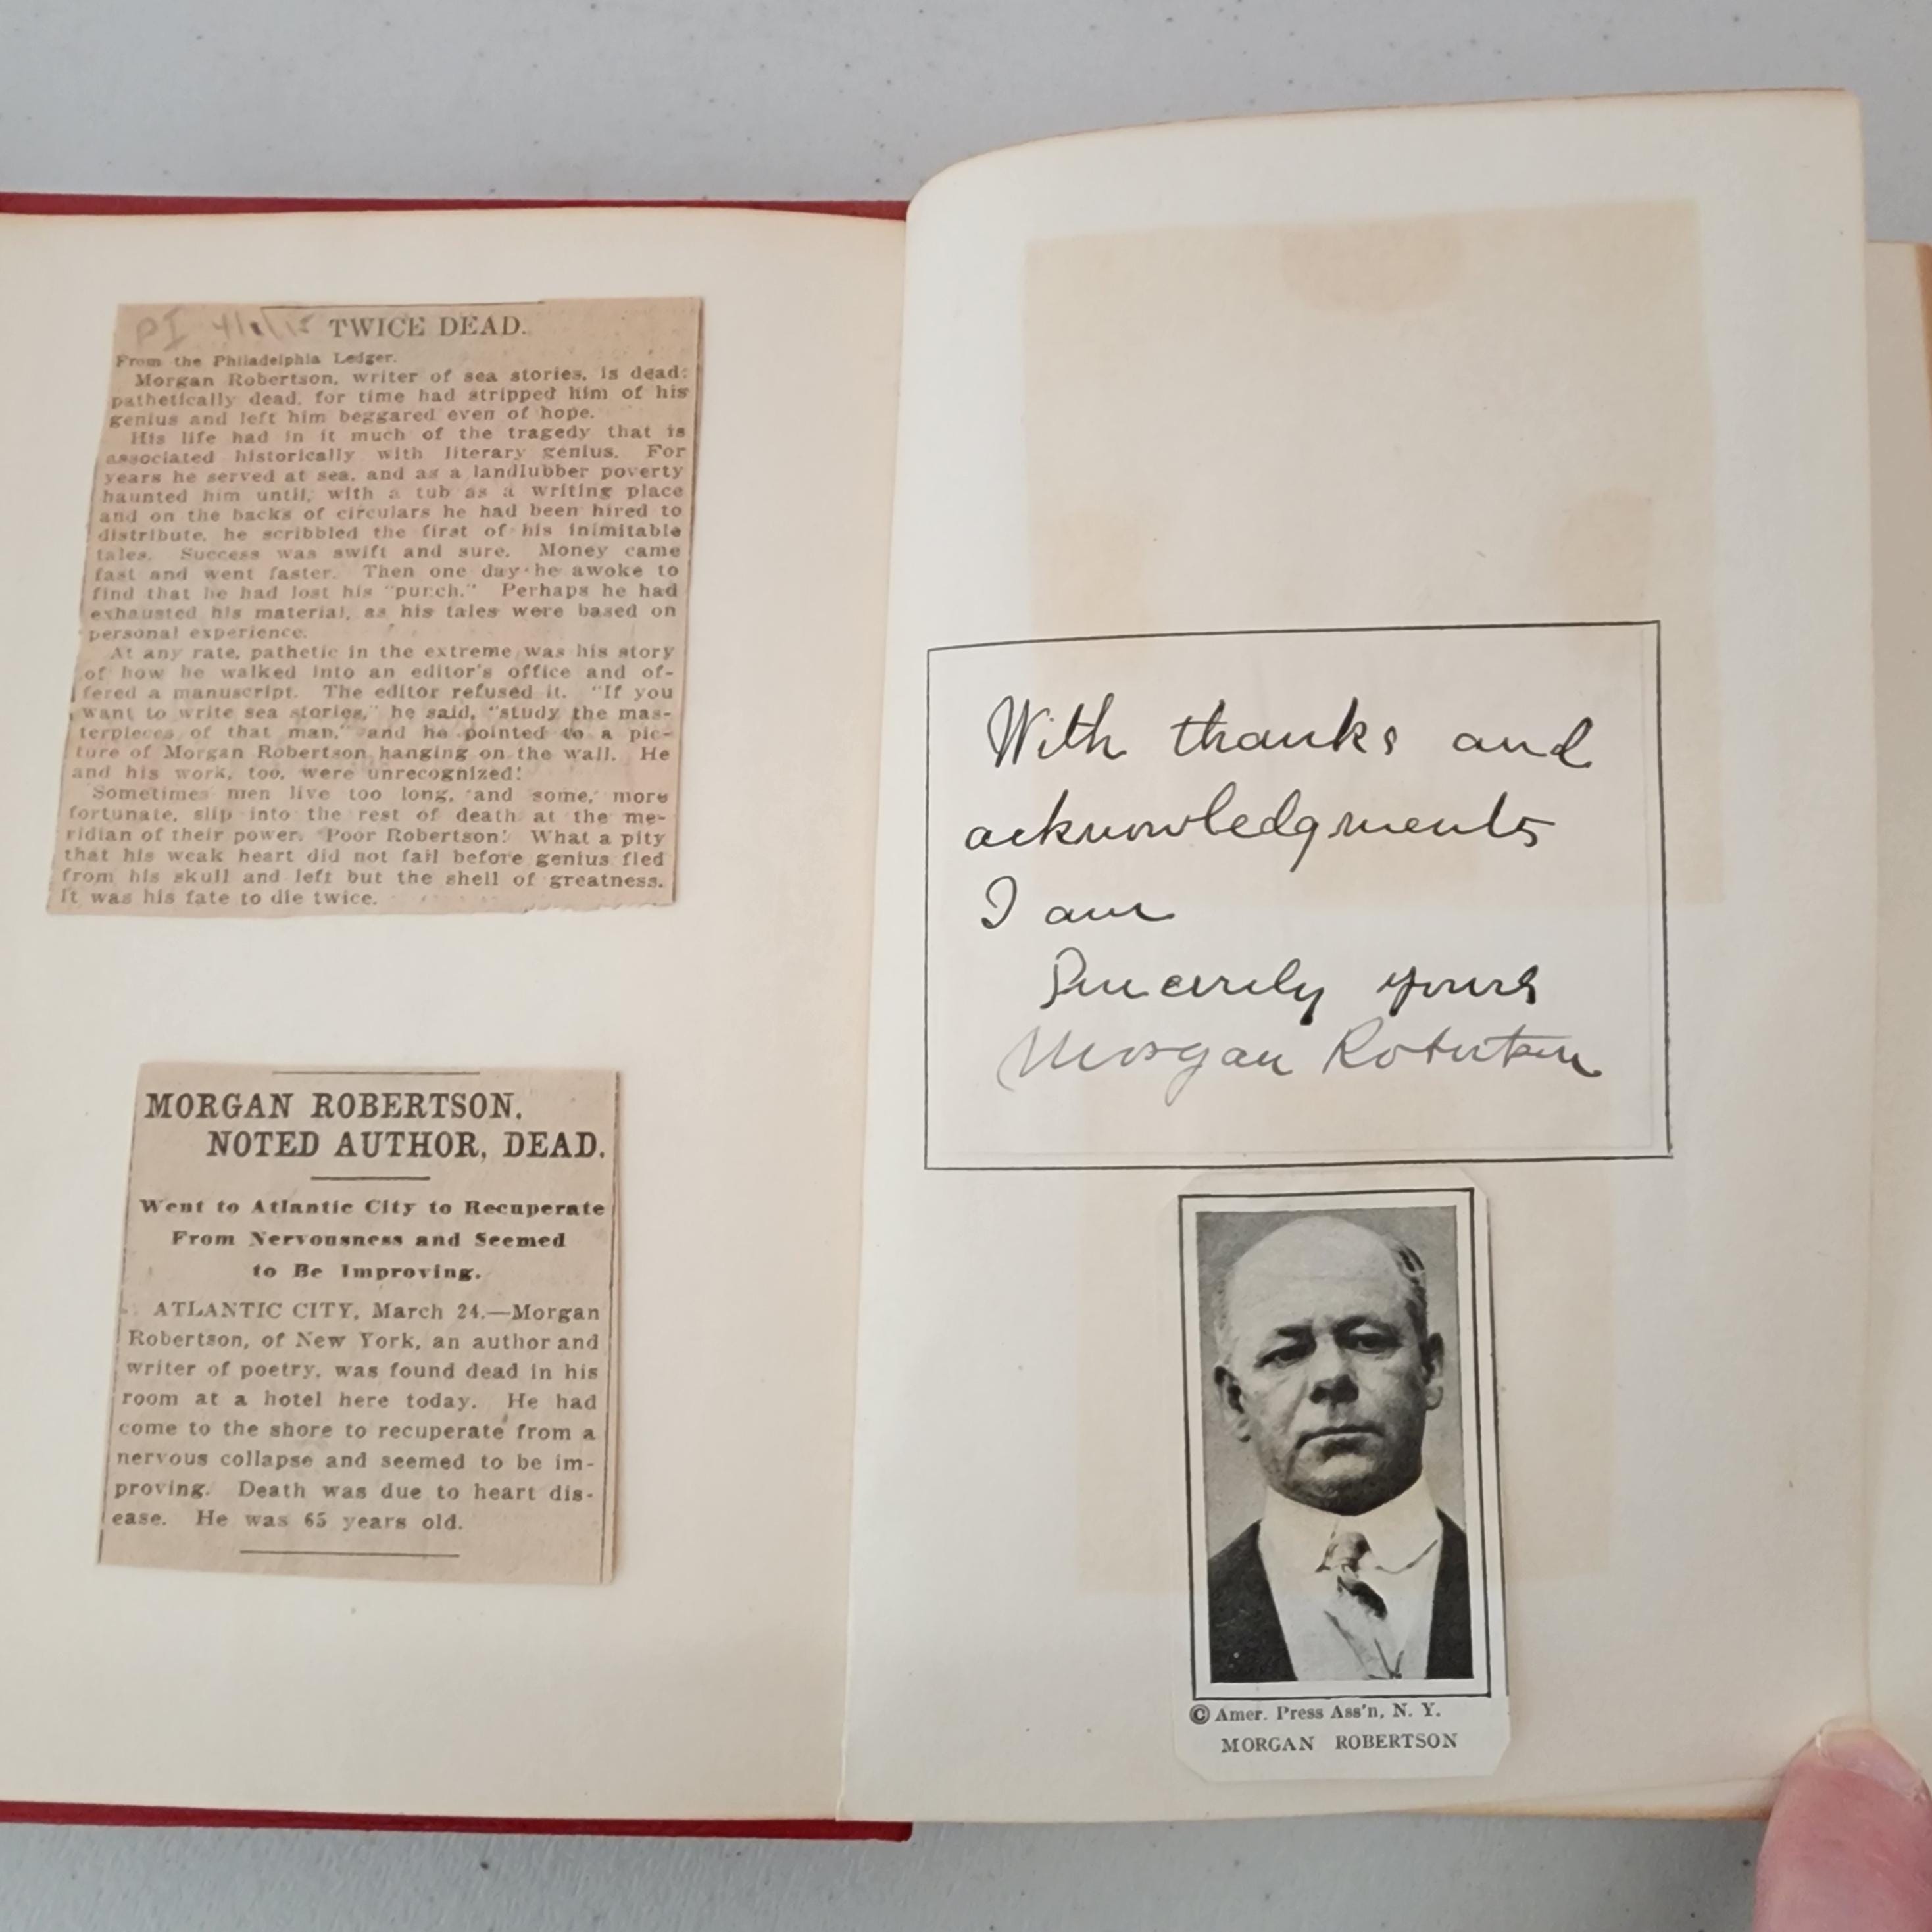 PI 4/1/15
TWICE DEAD.
From the Philadelphia Ledger.
Morgan Robertson, writer of sea stories, is dead;
pathetically dead, for time had stripped him of his
genius and left him beggared even of hope.
His life had in it much of the tragedy that is
associated historically with literary genius. For
years he served at sea, and as a landlubber poverty
haunted him until, with a tub as a writing place
and on the backs of circulars he had been hired to
distribute, he scribbled the first of his inimitable
tales. Success was swift and sure. Money came
fast and went faster. Then one day he awoke to
find that he had lost his "punch." Perhaps he had
exhausted his material, as his tales were based on
personal experience.
At any rate, pathetic in the extreme was his story
of how he walked into an editor's office and of-
fered a manuscript. The editor refused it. "If you
want to write sea stories," he said, "study the mas-
terpieces of that man," and he pointed to a pic-
ture of Morgan Robertson hanging on the wall. He
and his work, too, were unrecognized!
Sometimes men live too long, and some, more
fortunate, slip into the rest of death at the me-
ridian of their power. Poor Robertson! What a pity
that his weak heart did not fail before genius fled
from his skull and left but the shell of greatness.
It was his fate to die twice.
MORGAN ROBERTSON,
NOTED AUTHOR, DEAD.
Went to Atlantic City to Recuperate
From Nervousness and Seemed
to Be Improving.
ATLANTIC CITY, March 24.—Morgan
Robertson, of New York, an author and
writer of poetry, was found dead in his
room at a hotel here today. He had
come to the shore to recuperate from a
nervous collapse and seemed to be im-
proving. Death was due to heart dis-
ease. He was 65 years old.
With thanks and
acknowledgments
I am
Sincerely yours
Morgan Robertson
© Amer. Press Ass'n, N. Y.
MORGAN ROBERTSON